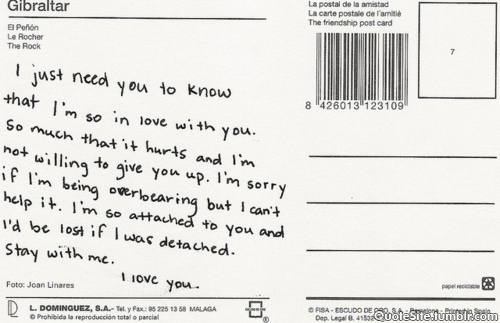 Gibraltar
El Peñón
Le Rocher
The Rock
I just need you to know
that I'm so in love with you.
So much that it hurts and I'm
not willing to give you up. I'm sorry
if I'm being overbearing but I can't
help it. I'm so attached to you and
I'd be lost if I was detached.
Stay with me.
I love you.
Foto: Joan Linares
L. DOMINGUEZ, S.A.- Tel. y Fax.: 95 225 13 58 MALAGA
© Prohibida la reproducción total o parcial
La postal de la amistad
La carte postale de l'amitié
The friendship post card
7
8 426013 123109
papel reciclable
© FISA - ESCUDO DE ORO, S.A. - Barcelona - Printed in Spain
Dep. Legal B.
QuoteSite.tumblr.com